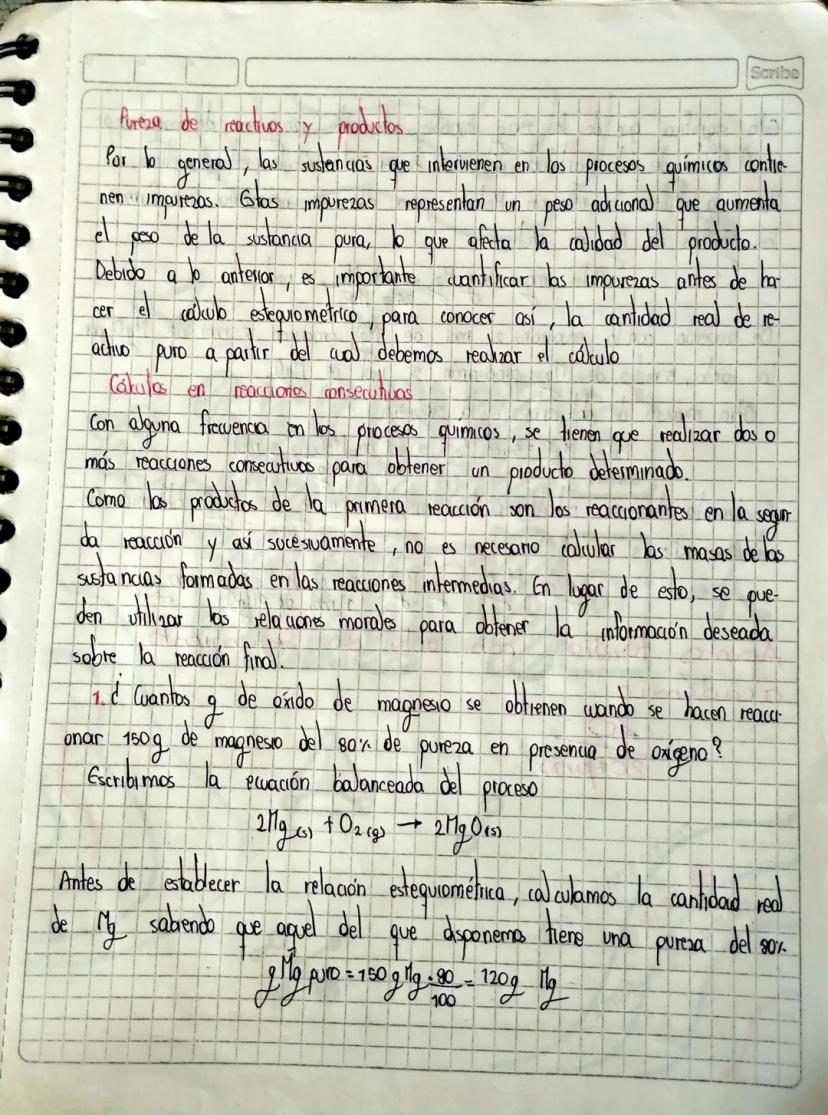 Scribe
Pureza de reactivos y productos
Por lo general, las sustancias que intervienen en los procesos químicos contie-
nen impurezas. Estas impurezas representan un peso adicional que aumenta
el peso de la sustancia pura, lo que afecta la calidad del producto.
Debido a lo anterior, es importante cuantificar las impurezas antes de ha-
cer el cálculo estequiométrico, para conocer así, la cantidad real de re-
activo puro a partir del cual debemos realizar el cálculo
Cálculos en reacciones consecutivas
Con alguna frecuencia en los procesos químicos, se tienen que realizar dos o
más reacciones consecutivas para obtener un producto determinado.
Como los productos de la primera reacción son los reaccionantes en la segun-
da reacción y así sucesivamente, no es necesario calcular las masas de las
sustancias formadas en las reacciones intermedias. En lugar de esto, se pue-
den utilizar las relaciones morales para obtener la información deseada
sobre la reacción final.
1. ¿Cuantos g de óxido de magnesio se obtienen cuando se hacen reacci-
onar 150g de magnesio del 80% de pureza en presencia de oxígeno?
Escribimos la ecuación balanceada del proceso
2Mg(s) + O2(g) → 2MgO(s)
Antes de establecer la relación estequiométrica, calculamos la cantidad real
de Mg sabiendo que aquel del que disponemos tiene una pureza del 80%
g Mg puro = 150 g Mg · 80/100 = 120g Mg